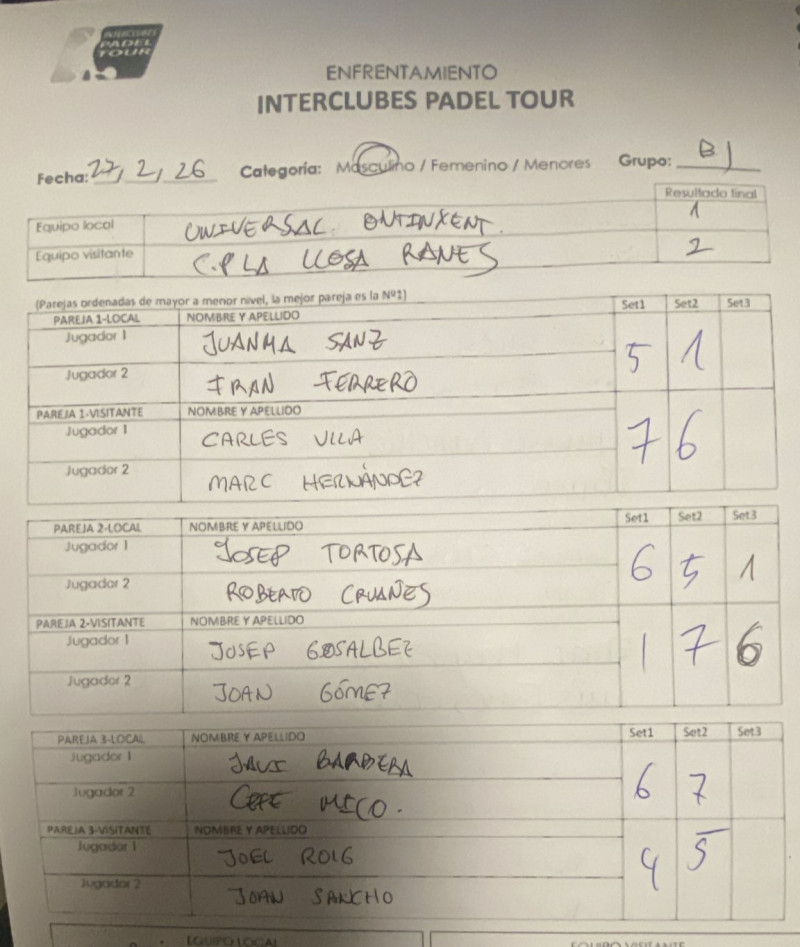 INTERCLUBES
PADEL
TOUR
ENFRENTAMIENTO
INTERCLUBES PADEL TOUR
Fecha: 27, 2, 26 Categoría: Masculino / Femenino / Menores Grupo: B1
Resultado final
Equipo local UNIVERSAL ONTINXENT. 1
Equipo visitante C.P LA LLOSA RANES 2
(Parejas ordenadas de mayor a menor nivel, la mejor pareja es la Nº1) Set1 Set2 Set3
PAREJA 1-LOCAL NOMBRE Y APELLIDO
Jugador 1 JUANMA SANZ 5 1
Jugador 2 FRAN FERRERO
PAREJA 1-VISITANTE NOMBRE Y APELLIDO
Jugador 1 CARLES VILA 7 6
Jugador 2 MARC HERNÁNDEZ
PAREJA 2-LOCAL NOMBRE Y APELLIDO Set1 Set2 Set3
Jugador 1 JOSEP TORTOSA 6 5 1
Jugador 2 ROBERTO CRUAÑES
PAREJA 2-VISITANTE NOMBRE Y APELLIDO
Jugador 1 JOSEP GOSALBEZ 1 7 6
Jugador 2 JOAN GÓMEZ
PAREJA 3-LOCAL NOMBRE Y APELLIDO Set1 Set2 Set3
Jugador 1 JAVI BARBERA 6 7
Jugador 2 CEFE MICO.
PAREJA 3-VISITANTE NOMBRE Y APELLIDO
Jugador 1 JOEL ROIG 4 5
Jugador 2 JOAN SANCHO
EQUIPO LOCAL EQUIPO VISITANTE